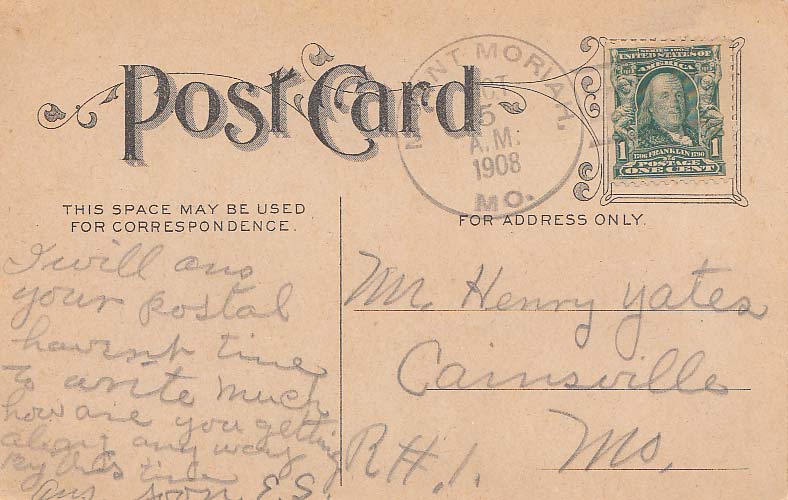 Post Card
MOUNT MORIAH,
OCT
5
A.M.
1908
MO.
SERIES 1902
UNITED STATES OF
AMERICA
1 1
1706 FRANKLIN 1790
POSTAGE
ONE CENT
THIS SPACE MAY BE USED
FOR CORRESPONDENCE.
FOR ADDRESS ONLY.
I will ans
your postal
havent time
to write much
how are you getting
along any way
by this time
ans soon, E.S.
Mr. Henry Yates
Cainsville
Mo.
R#1.